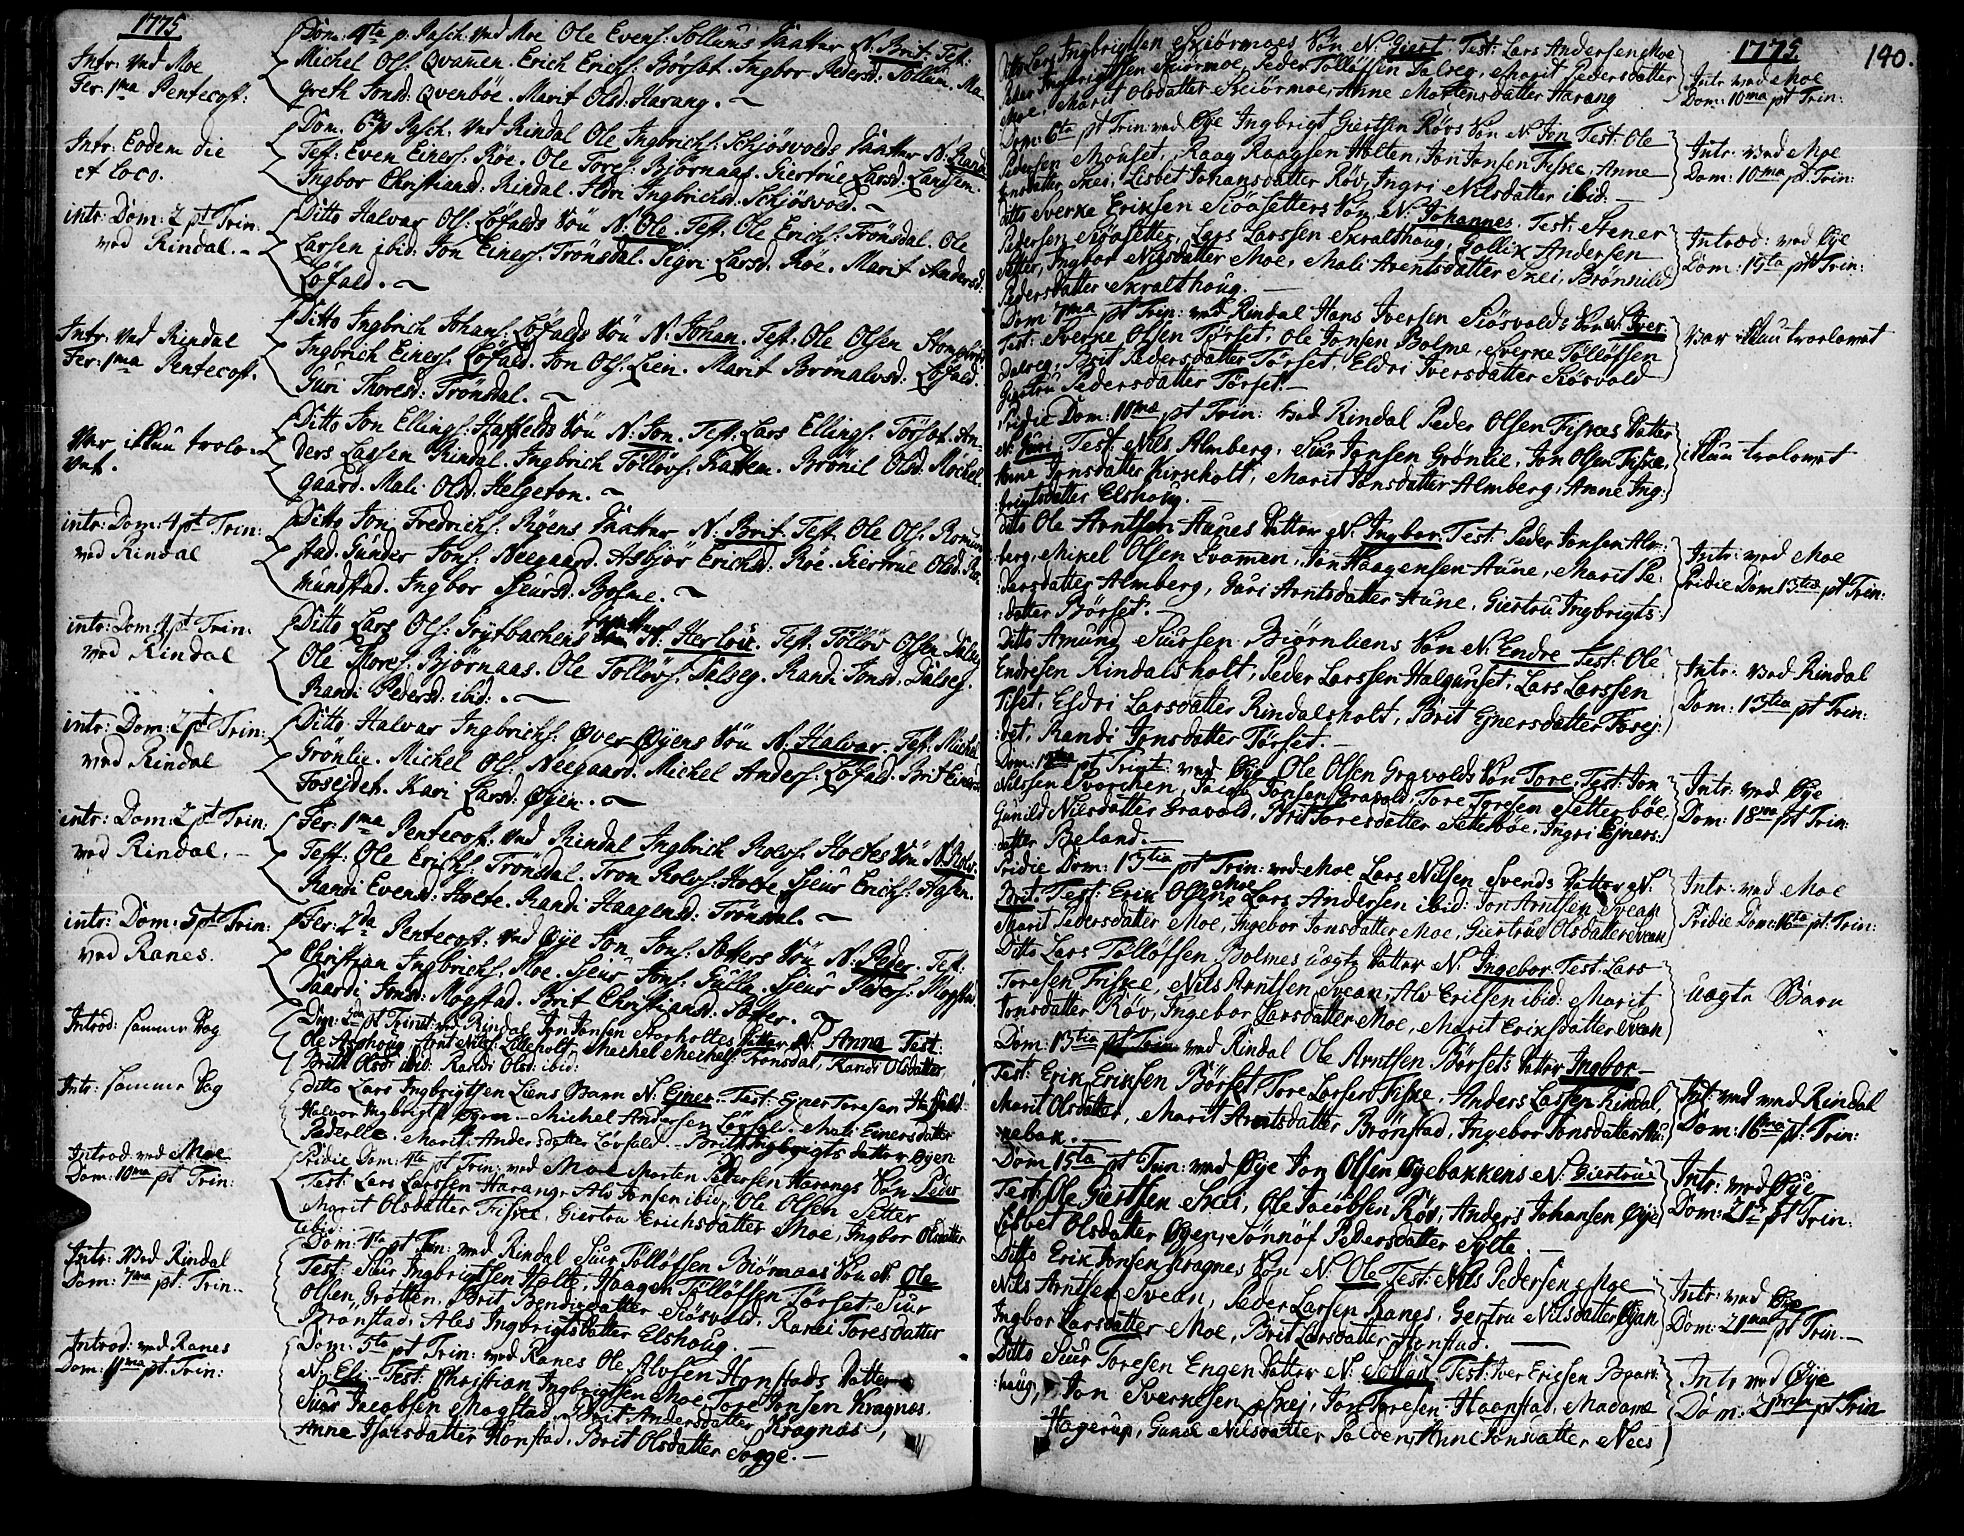 1775
Intr: ved Moe
Fer: 1ma Pentecost:
Dom: 4ta p. Pasch: ved Moe Ole Evens: Sollums Daatter N. Brit. Test:
Michel Ols: Qvamen. Erich Erichs: Börset. Ingbor Pedersd: Sollum. Ma-
greth Jonsd: Qvenböe. Marit Olsd: Harang. ~
Intr: Eodem die
et loco.
Dom: 6ta p Pasch: ved Rindal Ole Ingbrichs: Schjösvolds Daatter N. Randi
Test: Even Einers: Röe. Ole Tores: Björnaas. Giertrue Larsd: Langsen.
Ingbor Christiansd: Rindal. Ingbrichsd: Schjösvold. ~
intr: Dom: 2 pt Trin:
ved Rindal. -
Ditto Halvar Ols: Löfalds Sön N. Ole. Test: Ole Erichs: Trönsdal. Ole
Larsen ibid: Jon Einers: Trönsdal. Sigri Larsd: Röe. Marit Andersd:
Löfald. ~
Intr: ved Rindal
Fer: 1ma Pentecost.
Ditto Ingbrich Johans: Löfalds Sön N. Johan. Test: Ole Olsen
Ingbrich Einers: Löfald. Jon Ols: Lien. Marit Brönalvsd: Löfald.
Guri Thoresd: Trönsdal. ~
Var ikkun trolo-
vet.
Ditto Jon Ellings: Halfelds Sön N. Jon. Test: Lars Ellings: Törset. An-
ders Lassen Rindal. Ingbrich Töllövs: Kattem. Brönil Olsd: Mochel-
gaard. Mali Olsd: Helgeton. ~
intr: Dom: 4 pt Trin:
ved Rindal
Ditto Jon Fredrichs: Röens Daatter N. Brit. Test: Ole Ols: Romun-
stad. Gunder Jons: Neegaard. Asbjör Erichsd: Röe. Giertrue Olsd: Ro-
mundstad. Ingbor Sjeursd: Bolme. ~
intr: Dom: 4 pt Trin:
ved Rindal
Ditto Lars Ols: Grytbachens Daatter N. Herlöu. Test: Töllöv Olsen Dalseg
Ole Thores: Björnaas. Ole Töllövs: Dalseg. Randi Jonsd: Dalseg.
Randi Pedersd: ibid: . ~
intr: Dom: 2 pt Trin:
ved Rindal
Ditto Halvar Ingbrichs: Øver Øyens Sön N. Halvar. Test: Michel
Grönlie. Michel Ols: Neegaard. Michel Anders: Löfald. Brit Einersd:
Fosejdet. Kari Larsd: Øyen. ~
intr: Dom: 2 pt Trin:
ved Rindal. -
Fer: 1ma Pentecost: ved Rindal Ingbrich Rolvs: Holtes Sön N. Rolv.
Test: Ole Erichs: Trönsdal. Tron Rolvs: Holte. Sjeur Erichs: Halsen.
Randi Evensd: Holte. Randi Haagensd: Trönsdal. ~
intr: Dom: 5 pt Trin:
ved Ranes.
Fer: 2da Pentecost: ved Øye Jon Jons: Sætters Sön N. Peder. Test:
Christian Ingbrichs: Moe. Sjeur Jons: Gulla. Sjeur Peders: Mogstad
Daardi Jonsd: Mogstad. Brit Christiansd: Sætter. ~
Introd: samme Dag
Dom: 3tia pt Trinit: ved Rindal Jon Jonsen Storholtes Datter N. Anna Test:
Ole Aashoug, Arnt Nils: Lilleholt, Michel Michels: Tronsdal, Randi Olsdatter
Brith Olsd: ibid: Randi Olsd: ibid:
Intr: samme Dag
Ditto Lars Ingbrigtsen Liens Barn N. Ejner. Test: Ejner Toresen Halfeld.
Halvor Ingbrigts: Øyen. Michel Andersen Löefal. Mali Einersdatter
Pederlie. Marit Andersdatter Löefald. Brith Ingbrigts datter Øyen
Introd: ved Moe
Dom: 10ma pt Trin:
Pridie Dom: 4ta pt Trin: ved Moe Morten Pedersen Harangs Sön Peder
Test: Lars Larssen Harang, Alv Jonsen ibid, Ole Olsen Setter
Marit Olsdatter Friske, Giertru Erichsdatter Moe, Ingbor Olsdatter
ibid:
Intr: ved Rindal
Dom: 7ma pt. Trin.
Dom: 4ta pt Trin: ved Rindal Siur Töllöfsen Biörnaas Sön N. Ole
Test: Siur Ingbrigtsen Hælte, Haagen Töllöfsen Törset. Siur
Olsen Trötten. Brit Bendixdatter Siösvold. Randi Toresdatter
Brönstad, Ales Ingbrigtsdatter Elshoug.
Introd: ved Ranes
Dom: 11ma pt. Trin:
Dom: 5ta pt Trin: ved Ranes Ole Alvsen Honstads Datter
N. Eli. Test: Christian Ingbrigtsen Moe, Tore Jonsen Kragnes.
Siur Jacobsen Mogstad, Brit Andersdatter Kragnes,
Anne Isacsdatter Honstad, Brit Olsdatter Sogge. -
1775
140.
Ditto Lars Ingbrigtsen Skiörmoes Sön N. Giert. Test: Lars Andersen Moe
Peder Ingbrigtsen Skiörmoe, Peder Töllöfsen Dalseg, Marit Pedersdatter
Moe, Marit Olsdatter Skiörmoe, Anne Mortensdatter Harang
Intr: ved Moe
Dom: 10ma pt Trin:
Dom: 6ta pt Trin: ved Øye Ingbrigt Giertsen Rövs Sön N. Jon Test: Ole
Pedersen Mouset, Raag Raagsen Holten, Jon Jonsen Fiske, Anne
Jonsdatter Skei, Lisbet Johansdatter Röv, Ingri Nilsdatter ibid. -
Intr: ved Moe
Dom: 10ma pt Trin:
Ditto Sverke Eriksen Sioasetters Sön N. Johannes. Test: Stener
Pedersen Sioasetter, Lars Larssen Skralthoug, Gollik Andersen
Setter, Ingbor Nilsdatter Moe, Mali Arentsdatter Skei, Brönnild
Pedersdatter Skralthoug. -
Introd: ved Øye
Dom: 15ta pt Trin:
Dom 7ma pt Trin: ved Rindal Hans Iversen Siösvolds Sön N. Iver
Test: Sverke Olsen Törset, Ole Jonsen Bolme, Sverke Töllöfsen
Dalseg, Brit Pedersdatter Törset, Eldri Iversdatter Siösvold
Giertru Pedersdatter Törset. -
Var ikkun trolovet
Pridie Dom: 10ma pt Trin: ved Rindal Peder Olsen Fiskes Datter
N. Guri Test: Nils Almberg, Siur Jonsen Grönlie, Jon Olsen Fiske,
Anne Jonsdatter Kirsholt, Marit Jonsdatter Almberg, Anne Ing-
brigtsdatter Elshoug. -
ikkun trolovet
Ditto Ole Arntsen Aunes Datter N. Ingbor. Test: Peder Jonsen Alm-
berg, Mikel Olsen Svamen, Jon Haagensen Aune, Marit Pe-
dersdatter Almberg, Guri Arntsdatter Aune, Giertru Ingbrigts-
datter Börset. -
Intr: ved Moe
Pridie Dom: 13tia pt Trin:
Ditto Amund Siursen Biörnliens Sön N. Endre Test: Ole
Endresen Rindalsholt, Peder Larssen Halgunset, Lars Larssen
Tiset, Eldri Larsdatter Rindalsholt, Brit Ejnersdatter Fosej-
det, Randi Jonsdatter Törset. -
Intr: ved Rindal
Dom: 13tia pt Trin:
Dom: 12ma pt Trigt: ved Øye Ole Olsen Gravolds Sön Tore. Test: Jon
Nilssen Svorchen, Jonsen Gravold, Tore Toresen Setterböe
Gunild Nilsdatter Gravold, Brit Toresdatter Setterböe, Ingri Ejners-
datter Beland. -
Intr: ved Øye
Dom: 18ma pt Trin:
Pridie Dom: 13tia pt Trin: ved Moe Lars Nilsen Svends Datter N.
Brit. Test: Erik Olsen Moe Lars Andersen ibid: Jon Arntsen Svean
Marit Pedersdatter Moe, Ingebor Jonsdatter Moe, Giertrue Olsdatter Svean
Intr: ved Moe
Pridie Dom: 16ta pt: Trin:
Ditto Lars Töllöfsen Bolmes uægte Datter N. Ingebor Test: Lars
Toresen Friske, Nils Arntsen Svean, Alv Eriksen ibid: Marit
Jonsdatter Röv, Ingebor Larsdatter Moe, Marit Eriksdatter Svean
Uægte Barn
Dom: 13tia pt Trin ved Rindal Ole Arntsen Börsets Datter Ingbor -
Test: Erik Eriksen Börset, Tore Larssen Fiske, Anders Lassen Rindal,
Marit Olsdatter, Marit Arntsdatter Brönstad, Ingebor Jonsdatter Au-
nebak.
Int: ved ved Rindal
Dom: 16ma pt: Trin:
Dom 15ta pt Trin: ved Øye Jon Olsen Øyebakkens N. Giertrue
Test: Ole Giertsen Skei, Ole Jacobsen Röv, Anders Johansen Øye
Lisbet Olsdatter Øyen, Sönnöf Pedersdatter Sylte. -
Intr: ved Øye
Dom: 21 pt Trin:
Ditto Erik Jonsen Kragnes Sön N. Ole Test: Nils Pedersen Moe
Nils Arntsen Svean, Peder Larsen Ranes, Gertru Nilsdatter Øyan
Ingbor Larsdatter Moe, Brit Larsdatter Honstad. -
Intr: ved Øye
Dom: 21ma pt Trin. -
Ditto Siur Toresen Engen Datter N. Solloug Test: Iver Erissen Bparr-
haug, Jon Sverkesen Skej, Tore Toresen Haanstad, Madame
Hagerup, Gunild Nilsdatter Talden, Anne Jonsdatter Nees
Intr ved Øye
Dom: 21ma pt Trin